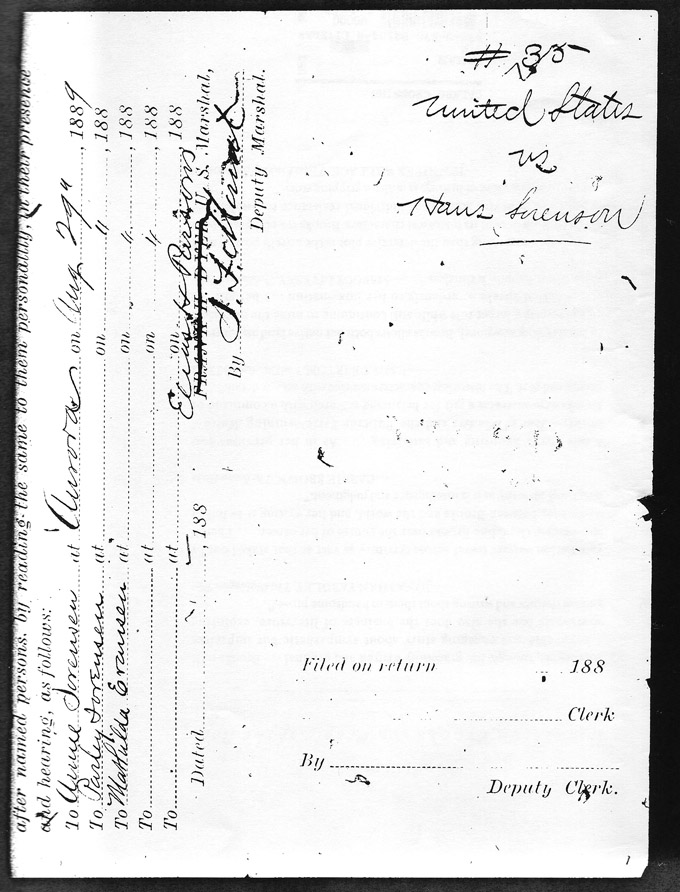 after named persons, by reading the same to them personally, in their presence
and hearing, as follows:
To Annie Sorensen at Aurora on Aug 29" , 1889
To Sorensen at on " , 188
To Mathilda Evansen at on " , 188
To at on " , 188
To at on , 188
Dated , 188
Elias H Parsons
FRANK H. DYER, U. S. Marshal,
By
Deputy Marshal.
# 35
United States
vs
Hans Sorenson
Filed on return 188
Clerk
By
Deputy Clerk.
1